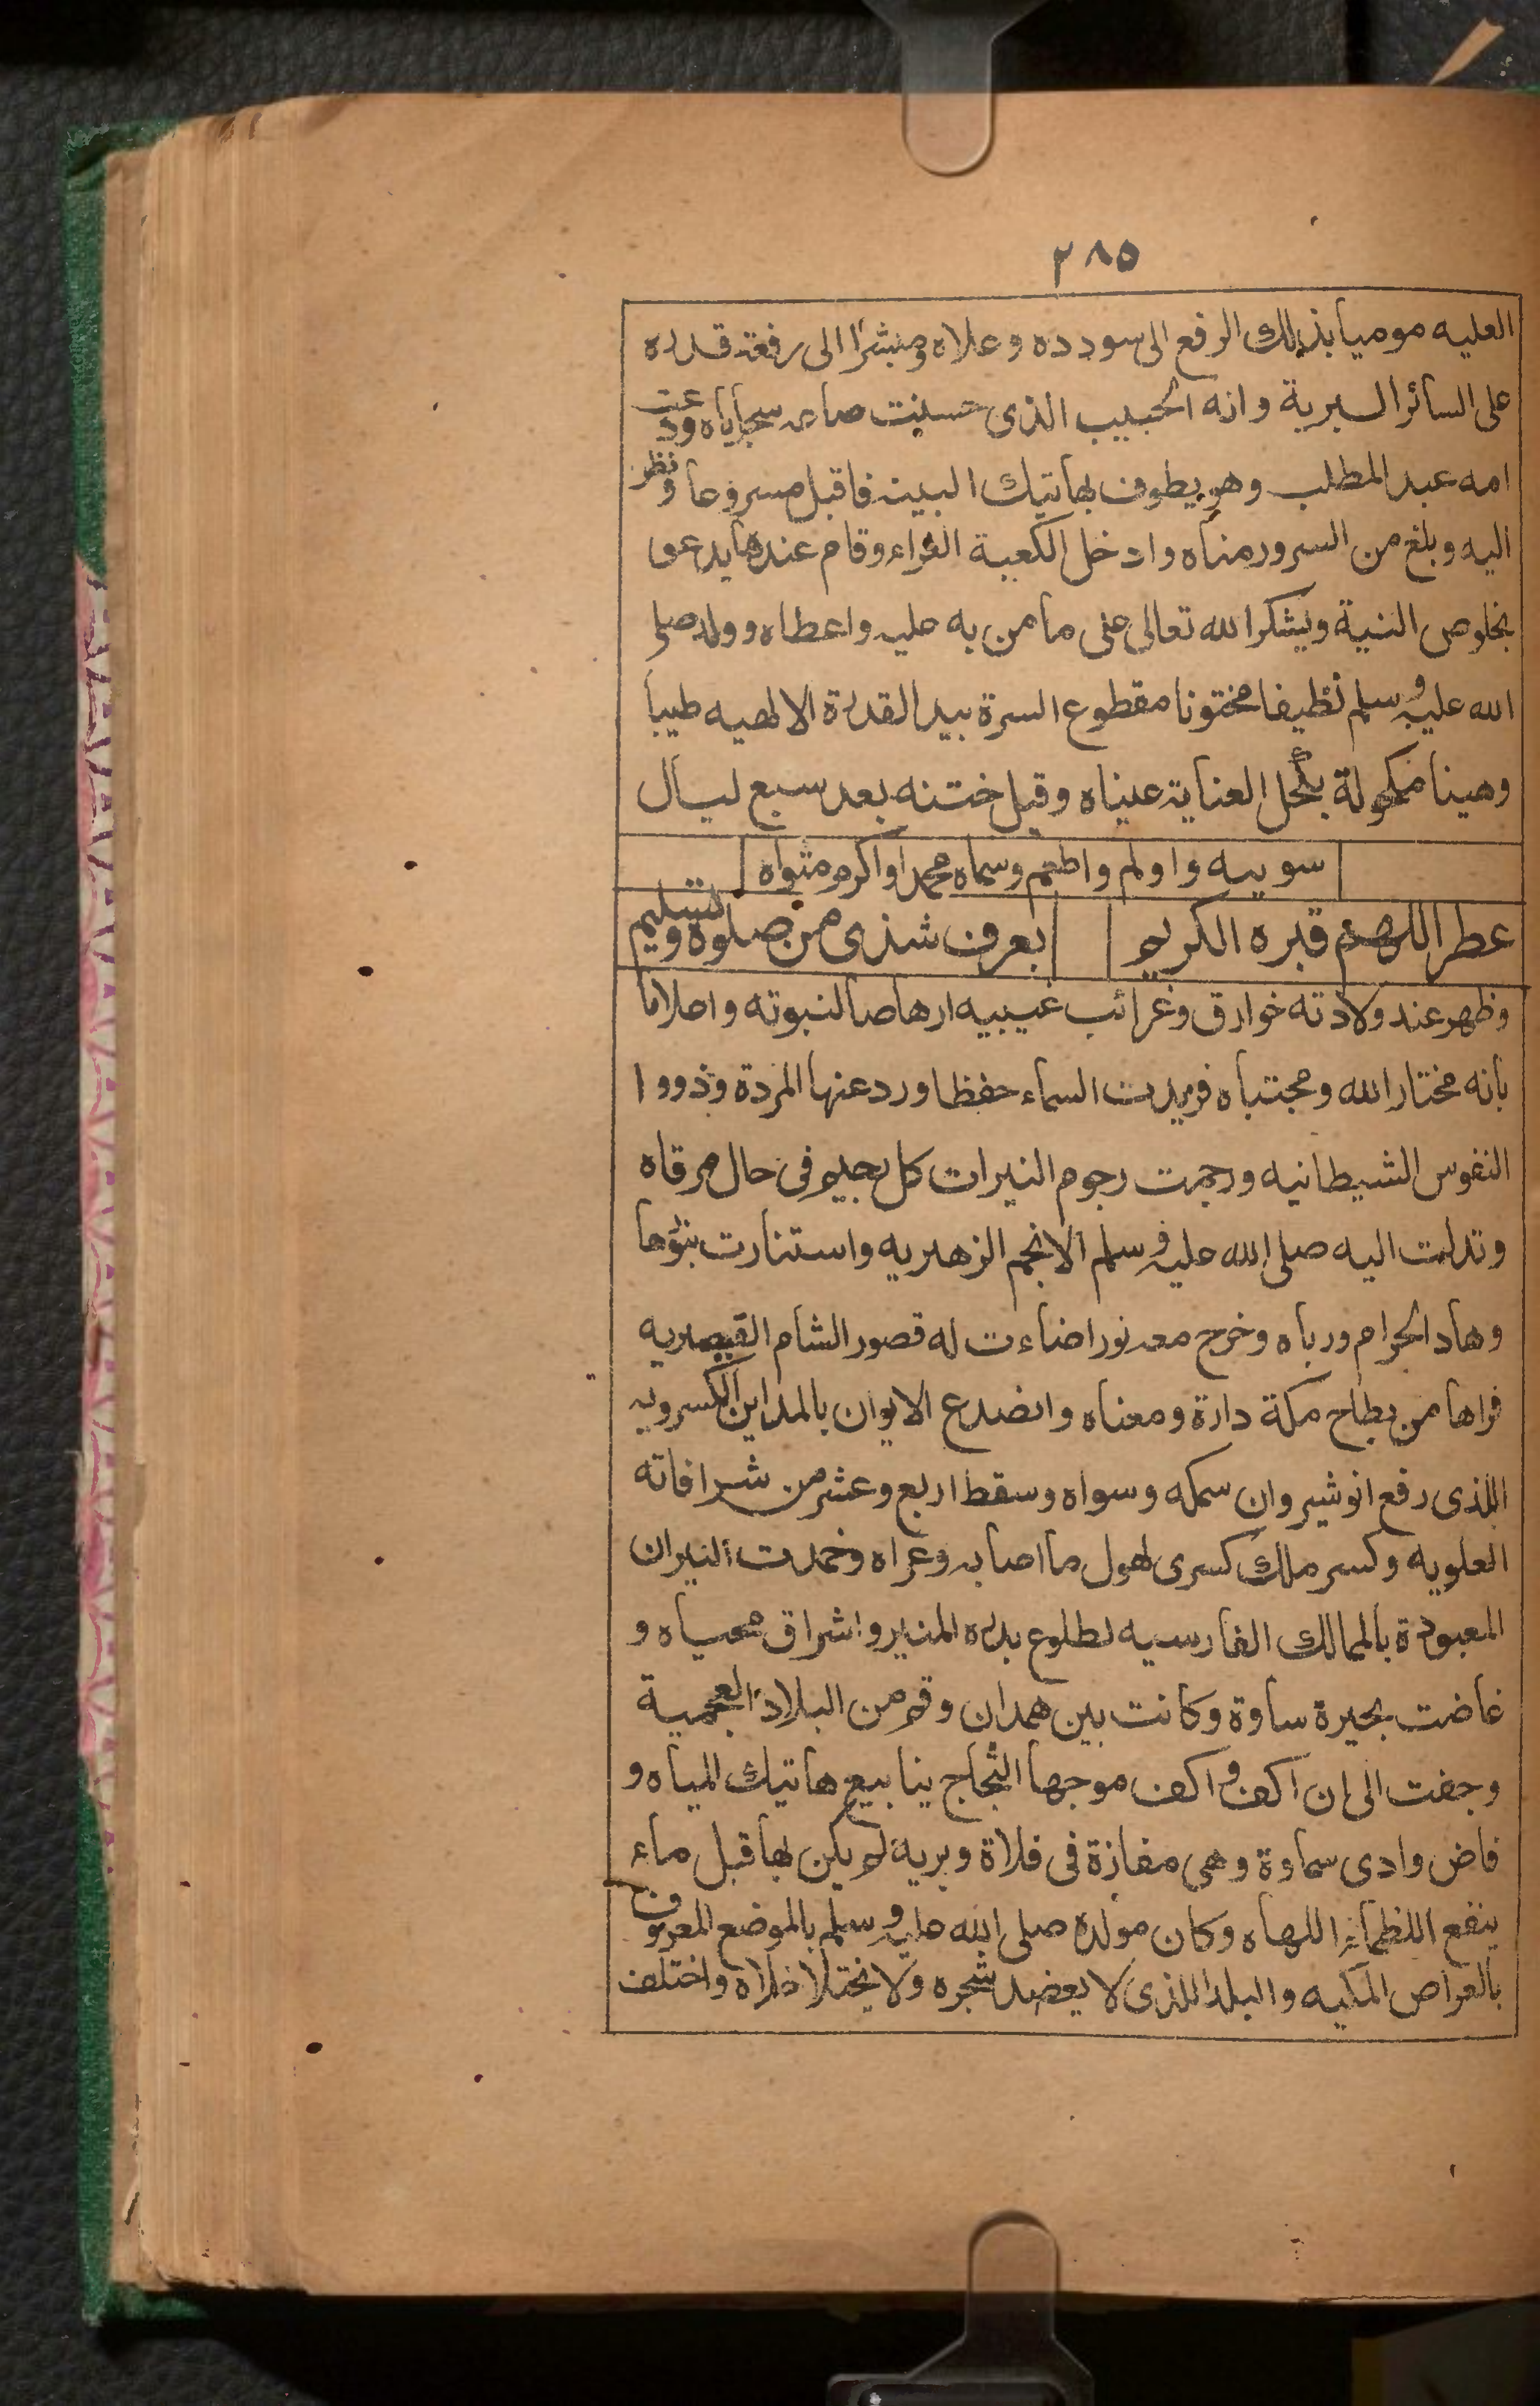 ٢٨٥
العليه موميا بذلك الرفع الى سودده وعلاه ومبشرا الى رفعة قدره
على السائر البرية وانه الحبيب الذى حسنت صباعه سجاياه ودعت
امه عبد المطلب وهو يطوف بهاتيك البينه فاقبل مسروعا ونظر
اليه وبلغ من السرور مناه وادخل الكعبة الغراء وقام عندها يدعى
بخلوص النية ويشكر الله تعالى على ما من به عليه واعطاه وولد صلى
الله عليه وسلم نظيفا مختونا مقطوع السرة بيد القدرة الالهيه طيبا
وهينا مكحولة بكحل العناية عيناه وقيل ختنه بعد سبع ليال
سوييه واولم واطعم وسماه محمدا واكرم مثواه
عطر اللهم قبره الكريم بعرف شذى من صلوة وتسليم
وظهر عند ولادته خوارق وغرائب غيبيه ارهاصا لنبوته واعلاما
بانه مختار الله ومجتباه فزيدت السماء حفظا ورد عنها المردة وذووا
النفوس الشيطانيه ورجمت رجوم النيرات كل رجيم فى حال مرقاه
وتدلت اليه صلى الله عليه وسلم الانجم الزهريه واستنارت بنورها
وهاد الحرام ورباه وخرج معه نور اضاءت له قصور الشام القيصريه
فراها من بطاح مكة دارة ومغناه وانصدع الايوان بالمداين الكسرويه
اللذى رفع انوشيروان سمكه وسواه وسقط اربع وعشر من شرافاته
العلويه وكسر ملك كسرى لهول ما اصابه وعراه وخمدت النيران
المعبودة بالممالك الفارسيه لطلوع بدره المنير واشراق محياه و
غاضت بحيرة ساوة وكانت بين همدان وقم من البلاد العجمية
وجفت الى ان اكف واكف موجها الثجاج ينابيع هاتيك المياه و
فاض وادى سماوة وهى مفازة فى فلاة وبرية لم يكن بها قبل ماء
ينفع اللظماء اللهاه وكان مولده صلى الله عليه وسلم بالموضع المعروف
بالعراص المكيه والبلد اللذى لا يعضد شجره ولا يختلا خلاه واختلف